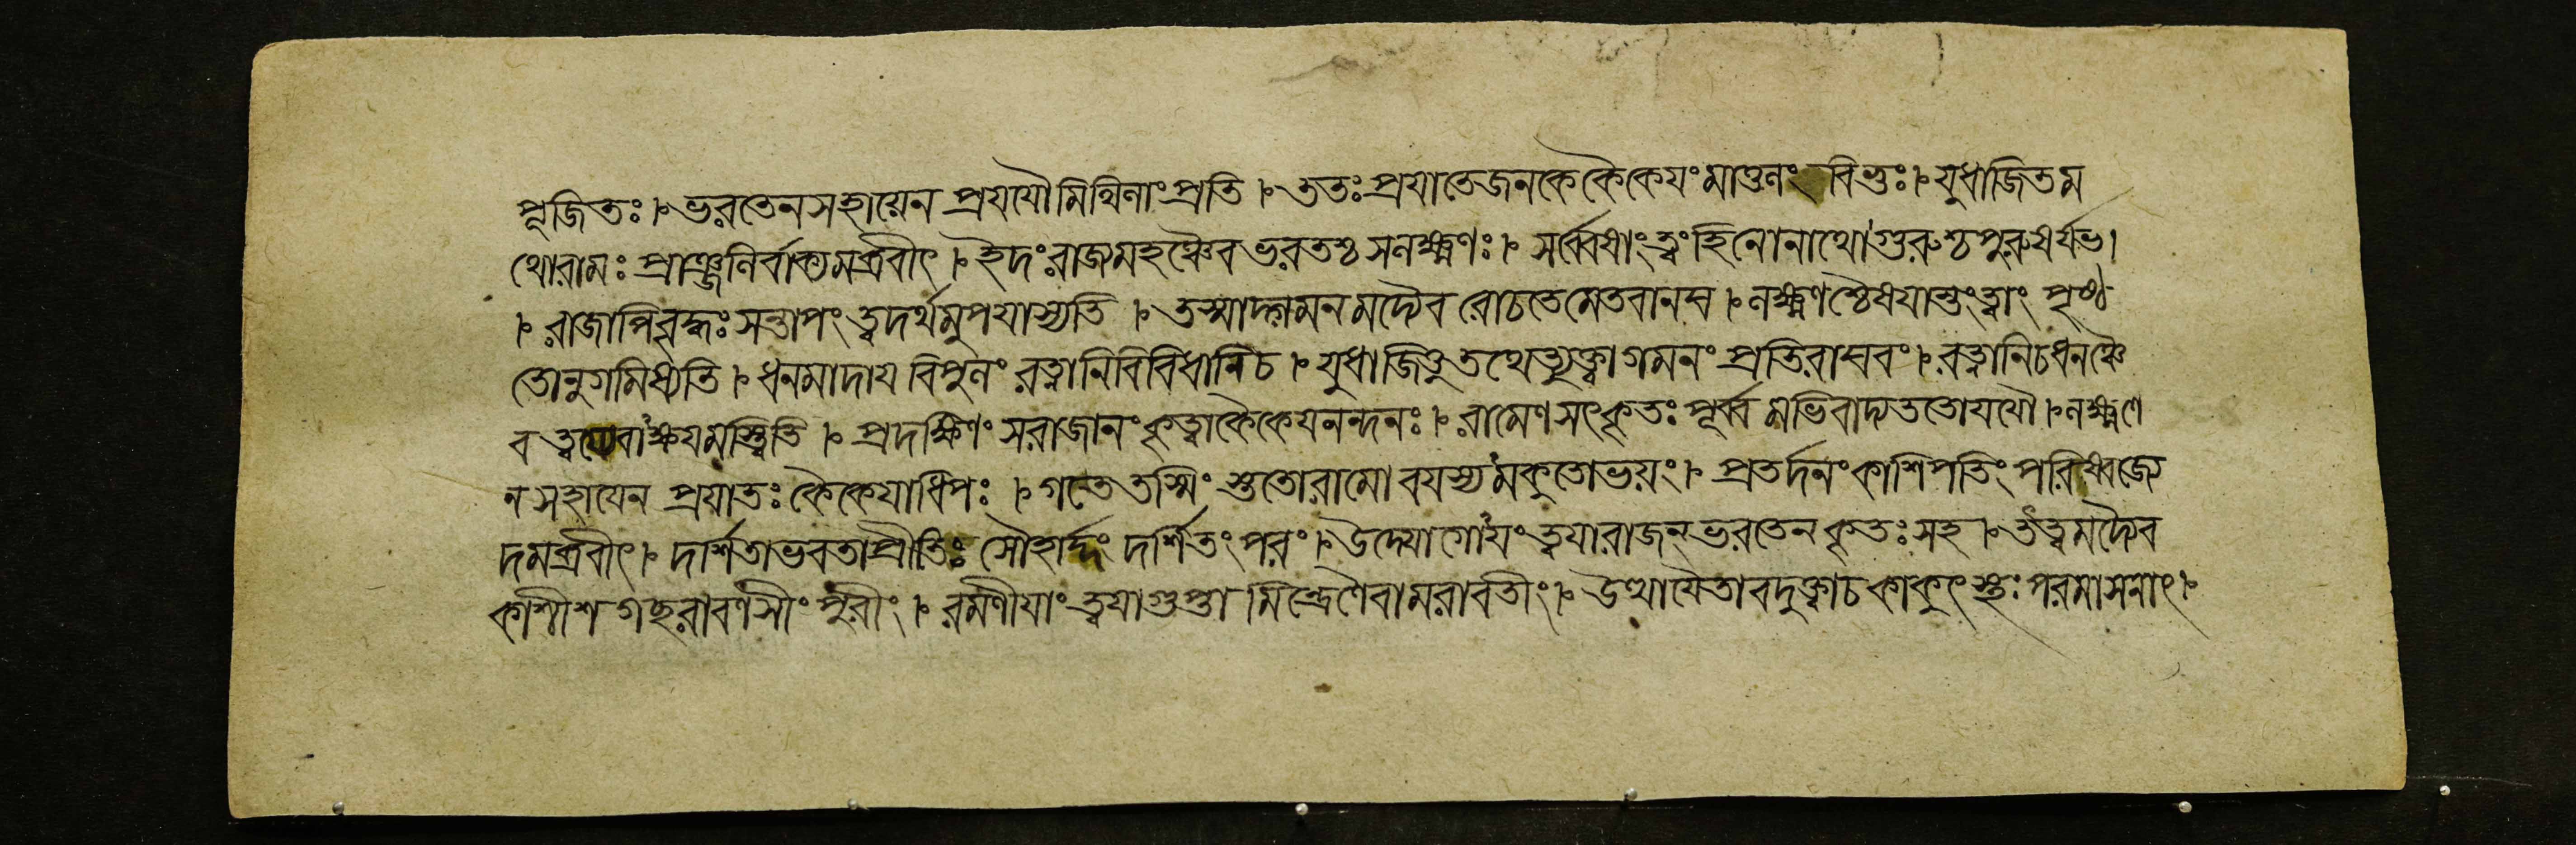 পূজিতঃ।ভরতেনসহায়েন প্রযযৌমিথিলাংপ্রতি।ততঃপ্রযাতেজনকেকৈকেযংমাতুলং বিভুঃ।যুধাজিতম
থোরামঃ প্রাঞ্জলির্বাক্যমব্রবীৎ।ইদংরাজ্যমহঞ্চৈব ভরতশ্চ সলক্ষ্মণঃ। সর্ব্বেষাং ত্বংহিনোনাথো গুরুশ্চপুরুষর্ষভ।
।রাজাপি বৃদ্ধঃ সন্তাপং ত্বদর্থমুপযাস্যতি।তস্মাদ্গমনমদ্যৈব রোচতেমেতবানঘ।লক্ষ্মণশ্চৈষযাস্তংত্বাং পৃষ্ঠ
তোনুগমিষ্যতি।ধনমাদায বিপুলং রত্নানিবিবিধানিচ।যুধাজিত্তু তথেত্যুক্ত্বাগমনং প্রতিরাঘবং।রত্নানিচধনঞ্চৈ
ব ত্বয্যেবাক্ষযমস্ত্বিতি।প্রদক্ষিণং সরাজানং কৃত্বাকৈকেযনন্দনঃ।রামেণ সৎকৃতঃ পূর্ব্বমভিবাদ্যততোযযৌ।লক্ষ্মণে
ন সহাযেন প্রযাতঃ কৈকেযাধিপঃ।গতে তস্মিংস্ততোরামো বযস্যমকুতোভয়ং।প্রতর্দনংকাশিপতিং পরিষ্বজ্যে
দমব্রবীৎ।দর্শিতাভবতাপ্রীতিঃ সৌহার্দ্দং দর্শিতংপরং।উদ্যোগোযং ত্বযারাজন্ ভরতেন কৃতঃসহ।তত্ত্বমদ্যৈব
কাশীশ গচ্ছবারাণসীং পুরীং।রমণীযাং ত্বযাগুপ্তা মিন্দ্রেণৈবামরাবতীং।উত্থাযৈতাবদুক্ত্বাচকাকুৎস্থঃপরমাসনাৎ।